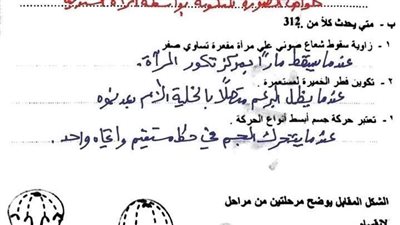 خواص الصورة المتكونة بواسطة المرآة المستوية
ب - متى يحدث كلاً من 312.
١ - زاوية سقوط شعاع ضوئي على مرآة مقعرة تساوي صفر
عندما يسقط ماراً بمركز تكور المرآة.
٢ - تكوين فطر الخميرة لمستعمرة ؟
عندما يظل البرعم متصلاً بالخلية الأم بعد نموه
1 - تعتبر حركة جسم أبسط أنواع الحركة ؟
عندما يتحرك الجسم في خط مستقيم واتجاه واحد.
الشكل المقابل يوضح مرحلتين من مراحل